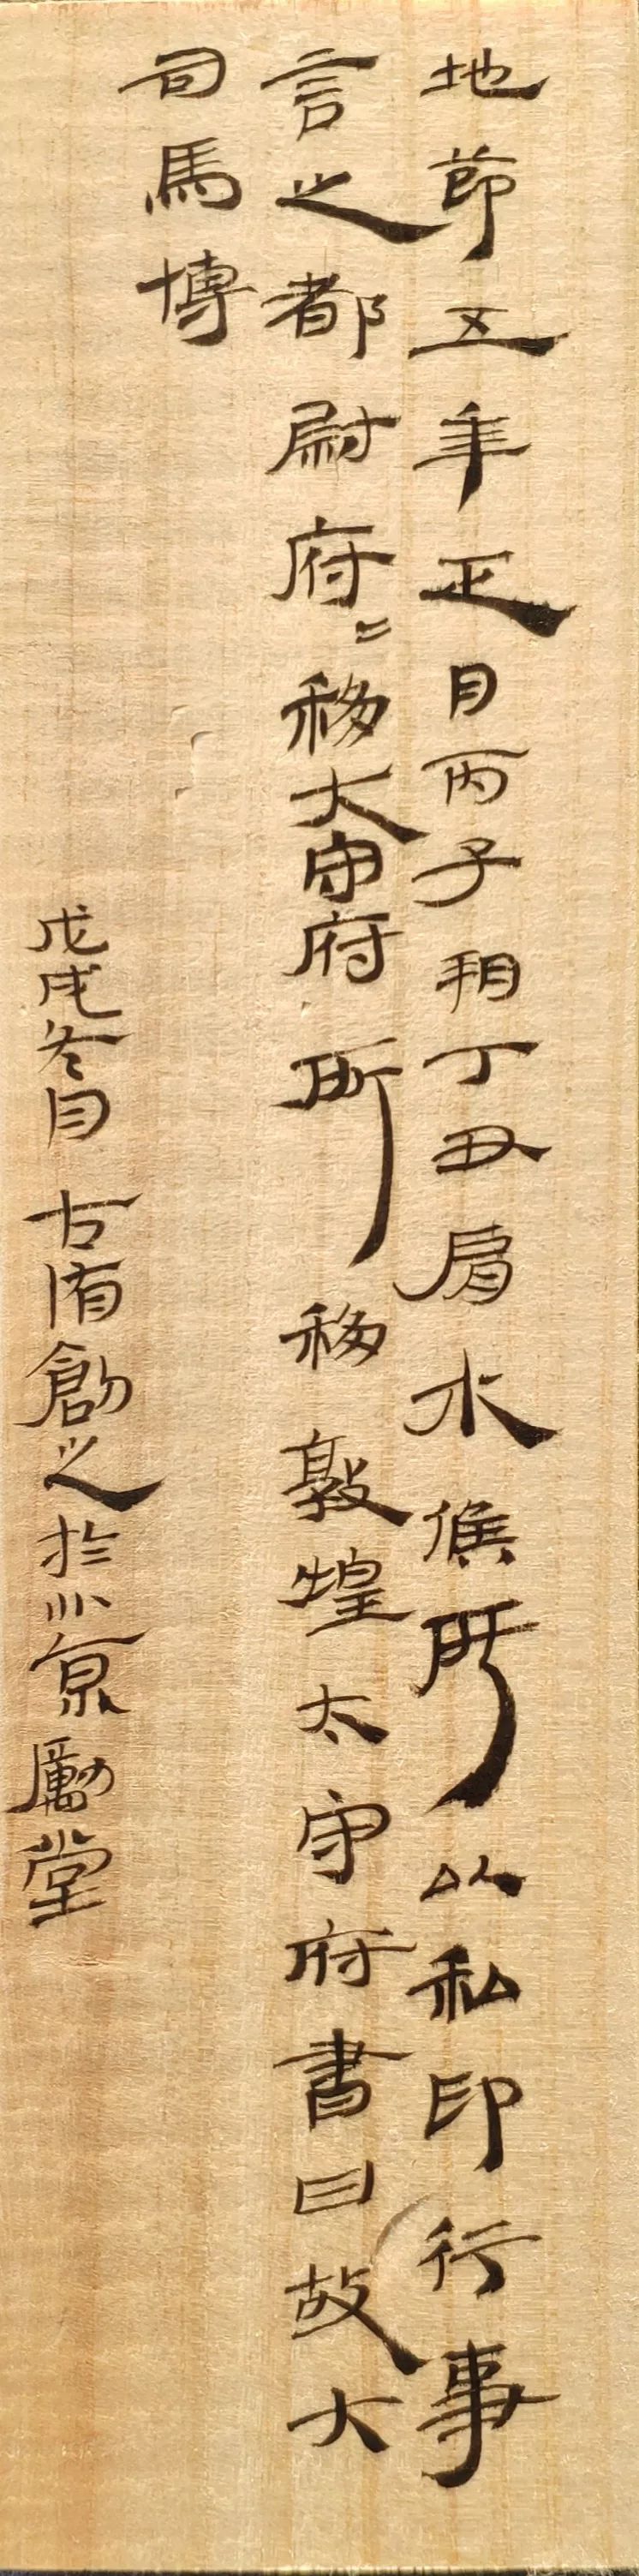 地節五年正月丙子朔丁丑肩水候所以私印行事
言之都尉府=移大守府所移敦煌太守府書曰故大
司馬博
戊戌冬月古侑創之於小京勵堂